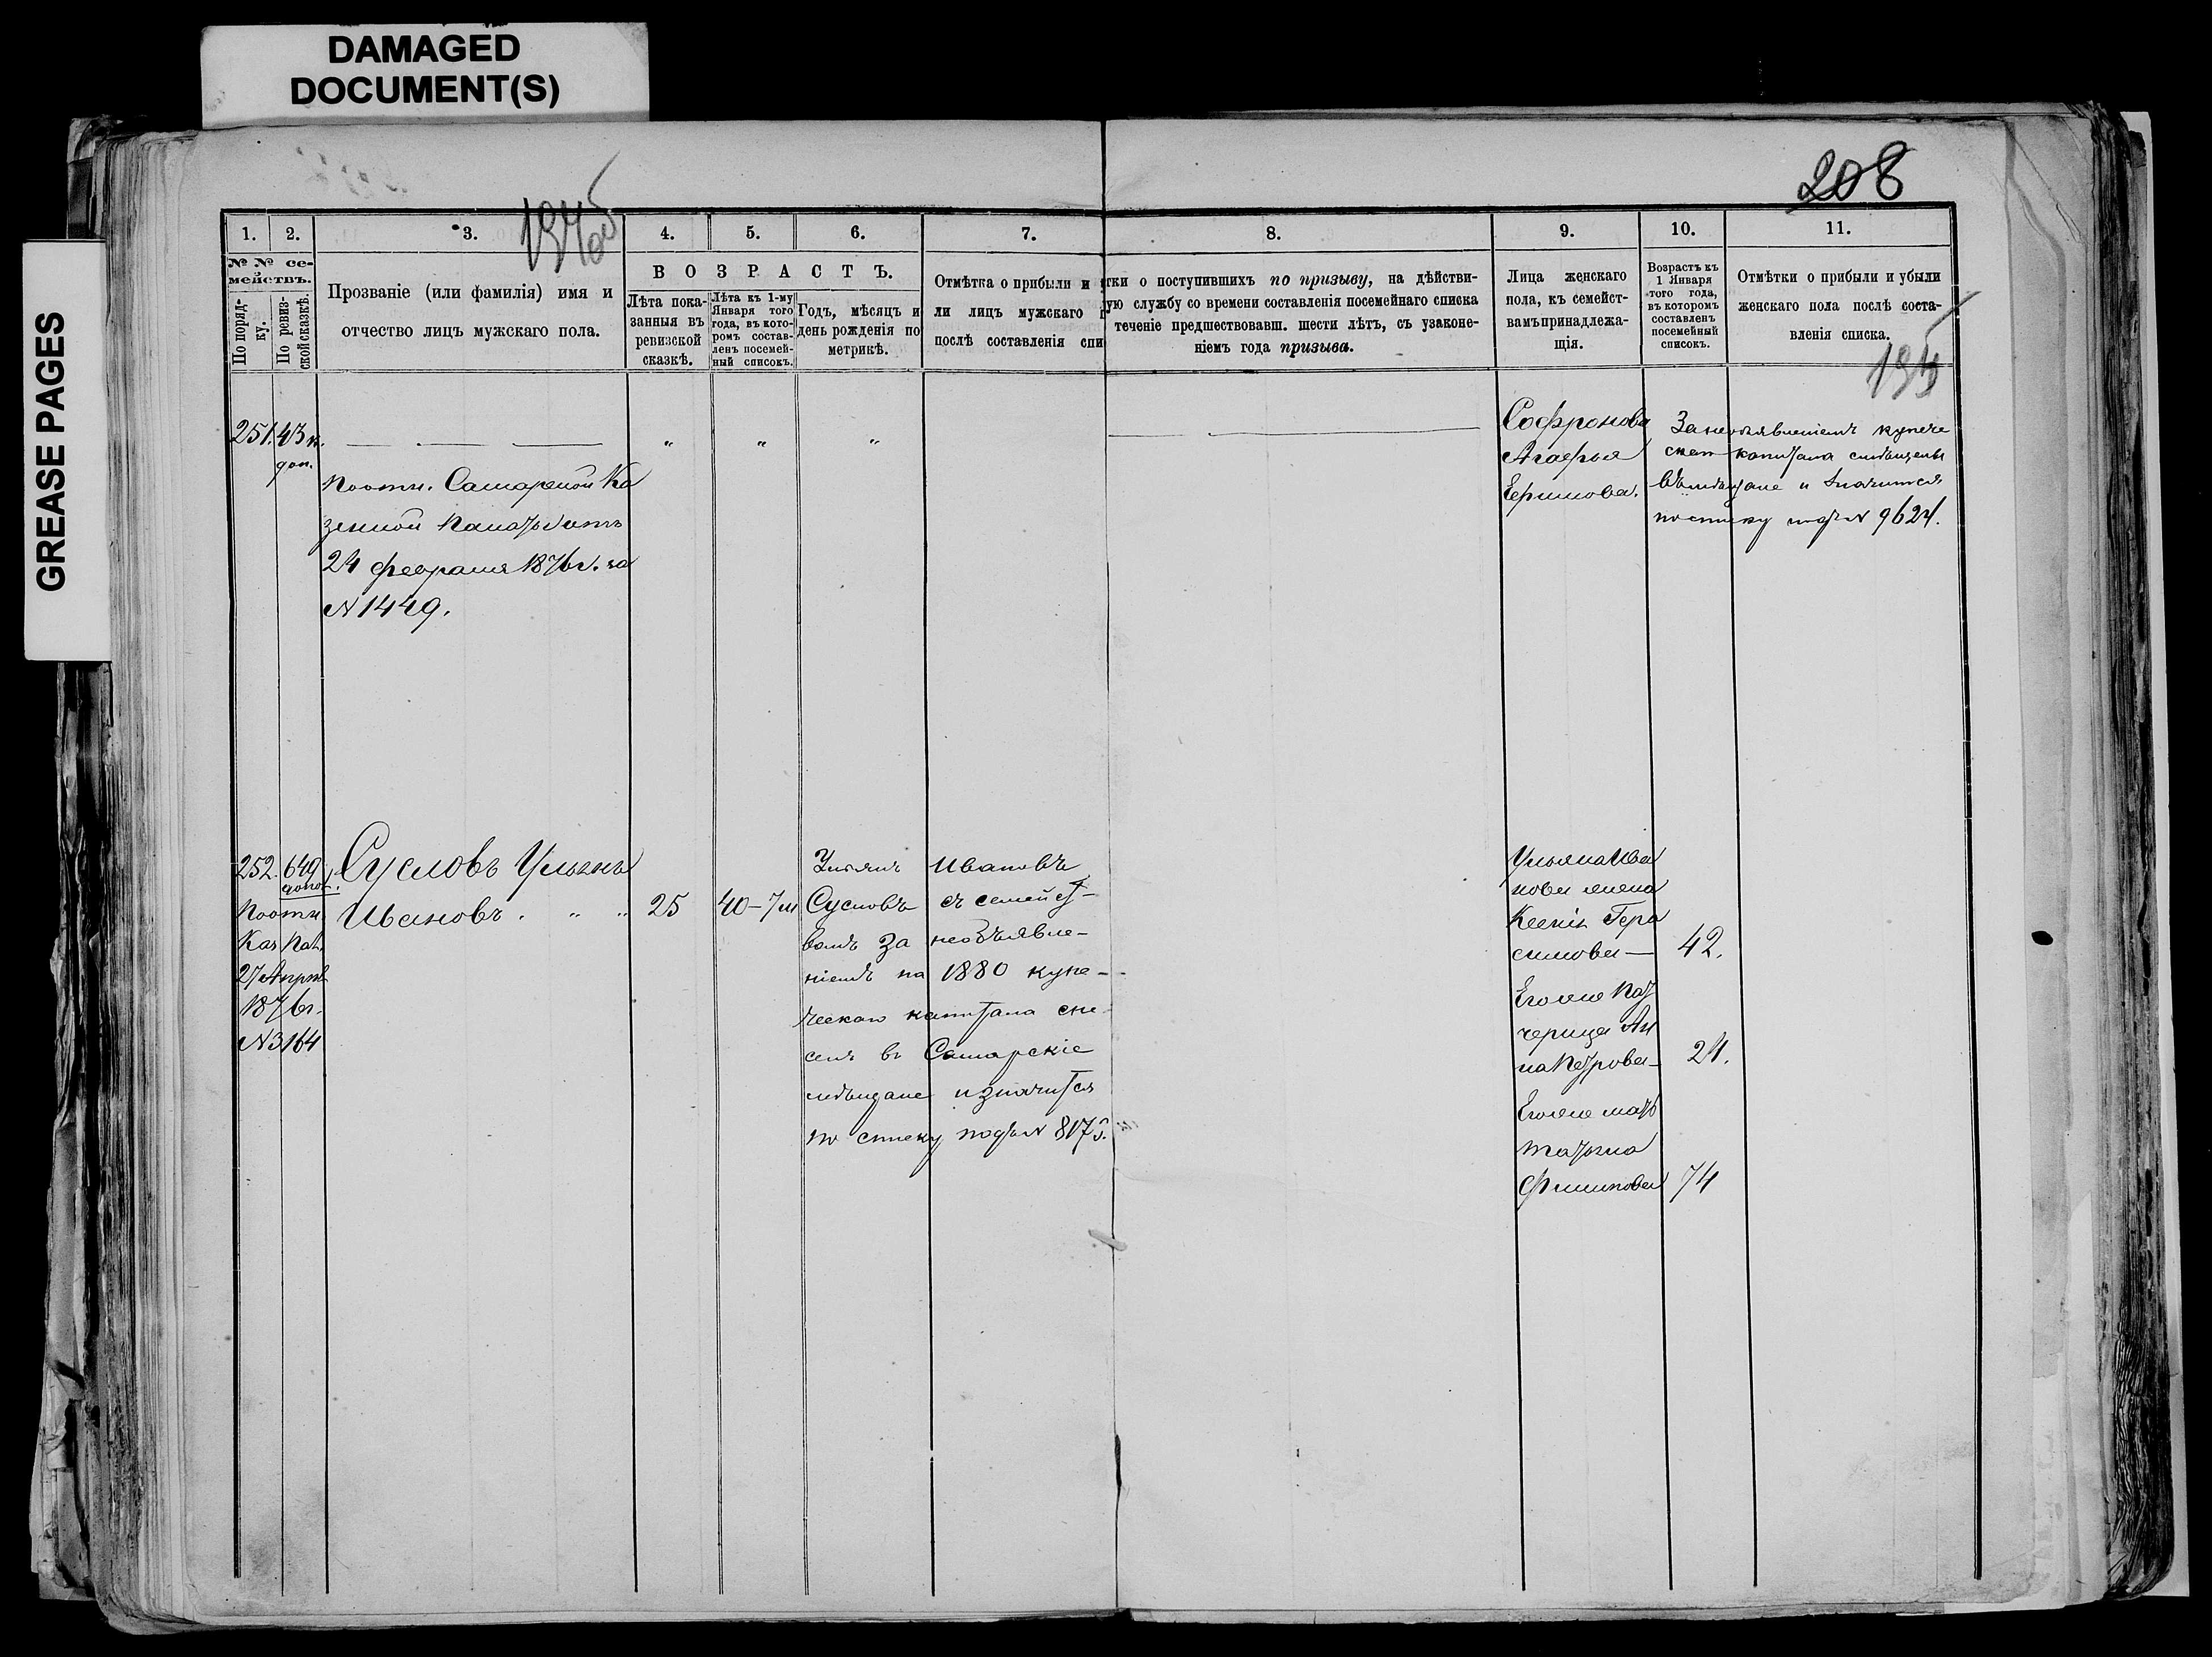 DAMAGED
DOCUMENT(S)
GREASE PAGES
208
194об
195
1. 2. 3. 4. 5. 6. 7. 8. 9. 10. 11.
№ № се-
мействъ.
По поряд-
ку.
По ревиз-
ской сказкѣ.
Прозваніе (или фамилія) имя и
отчество лицъ мужскаго пола.
ВОЗРАСТЪ.
Лѣта пока-
занныя въ
ревизской
сказкѣ.
Лѣта къ 1-му
Января того
года, въ кото-
ромъ состав-
ленъ посемей-
ный списокъ.
Годъ, мѣсяцъ и
день рожденія по
метрикѣ.
Отмѣтка о прибыли и
ли лицъ мужскаго
послѣ составленія спи
тки о поступившихъ по призыву, на дѣйстви-
ую службу со времени составленія посемейнаго списка
теченіе предшествовавш. шести лѣтъ, съ узаконе-
ніемъ года призыва.
Лица женскаго
пола, къ семейст-
вамъ принадлежа-
щія.
Возрастъ къ
1 Января
того года,
въ которомъ
составленъ
посемейный
списокъ.
Отмѣтки о прибыли и убыли
женскаго пола послѣ соста-
вленія списка.
251. 43 к.
доп.
Постн. Самарской Ка
зенной Палаты отъ
24 февраля 1876 г. за
№ 1449.
Софронова
Агафья
Ефимова.
За необъявленіемъ купече
скаго капитала
въ мѣщане и значится
по списку подъ № 9624.
252. 649
допол.
Постн.
Каз. Пал.
27 Апрѣл.
1876 г.
№ 3164
Сусловъ Ульянъ
Ивановъ . " " 25 40-7 м
Ульянъ Ивановъ
Сусловъ съ семейст-
вомъ за необъявле-
ніемъ на 1880 купе-
ческаго капитала
въ Самарскіе
мѣщане и значится
по списку подъ № 8175.
Ульяна Ива
нова жена
Ксенія Гера
симова — 42.
Его же пад
черица Ан
на Петрова — 24.
Его же мать
Татьяна
Филипова 74